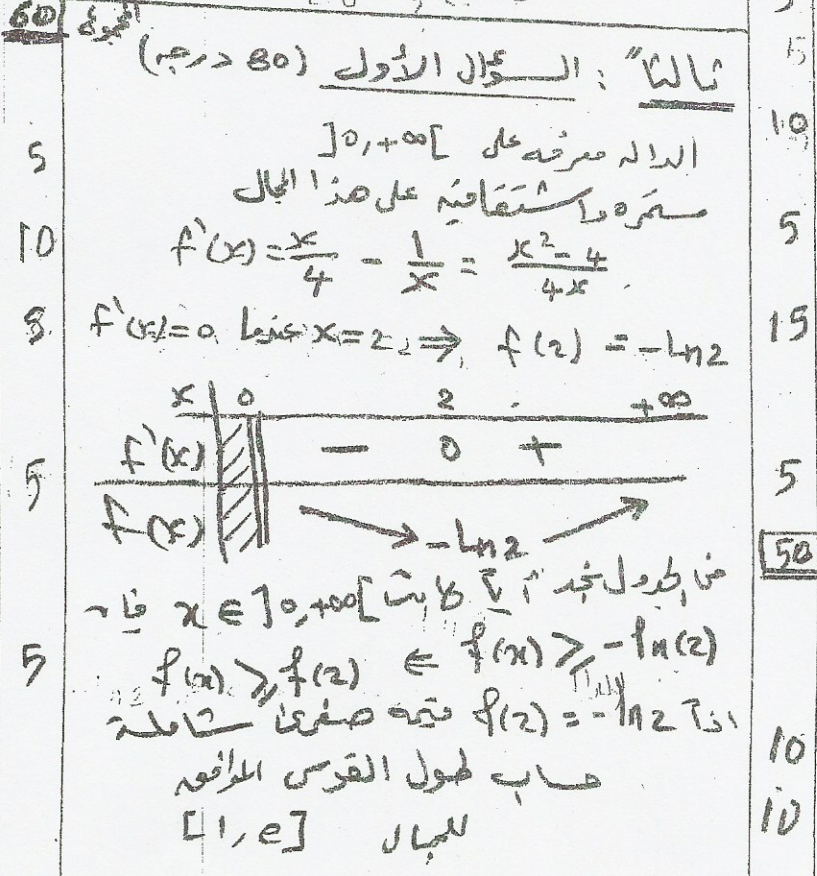 60 المجموع
ثالثاً: السؤال الأول (80 درجة)
الدالة معرفة على ]0,+∞[
مستمرة واشتقاقية على هذا المجال
f`(x) = x/4 - 1/x = (x²-4)/4x
f`(x)=0 عندما x=2 ⇒ f(2) = -Ln2
x 0 2 +∞
f`(x) - 0 +
f(x) -Ln2
من الجدول نجد أياً كانت x ∈ ]0,+∞[ فإن
f(x) ≥ f(2) ⇐ f(x) ≥ -ln(2)
اذاً f(2) = -ln2 قيمة صغرى شاملة
حساب طول القوس الموافق
للمجال [1,e]
5
10
8
5
5
5
10
5
15
5
50
10
10